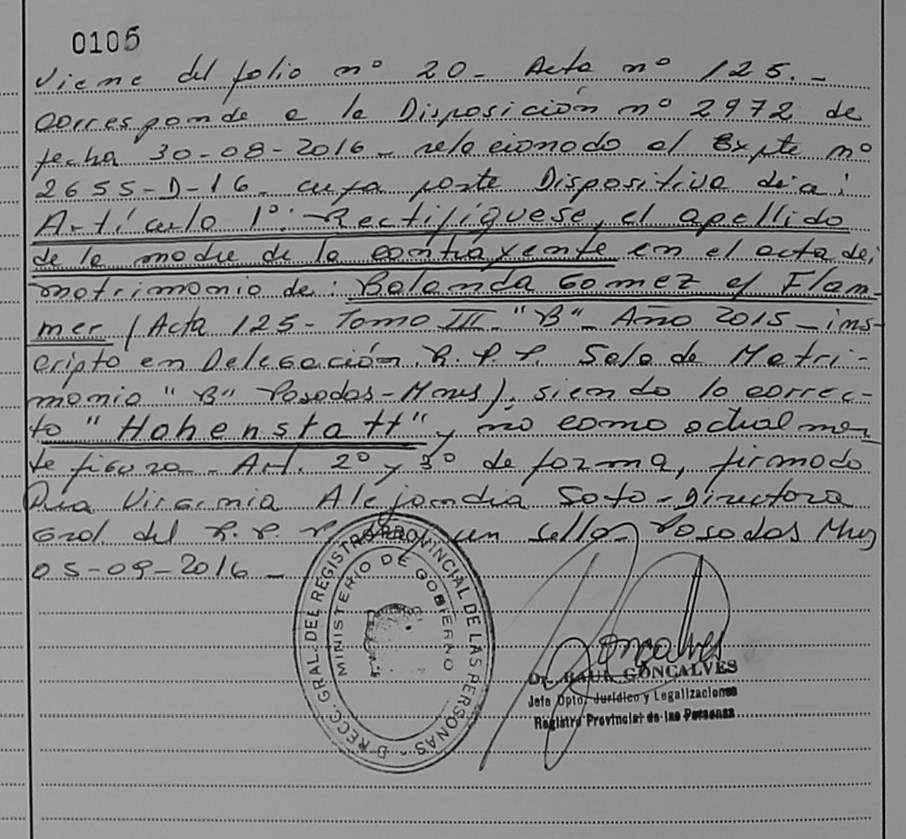 0105
Viene del folio nº 20- Acta nº 125.-
corresponde a la Disposición nº 2972 de
fecha 30-08-2016- relacionado al Expte nº
2655-D-16- cuya parte Dispositiva dice:
Artículo 1º: Rectifíquese, el apellido
de la madre de la contrayente en el acta de
matrimonio de: Balanda Gomez c/ Flam-
mer (Acta 125- Tomo III- "B"- Año 2015- ins-
cripto en Delegación R.P.P. Sala de Matri-
monio "B" Posadas-Mnes), siendo lo correc-
to "Hohenstatt" y no como actualmen-
te figura- Art. 2º y 3º de forma, firmado
Dra Virginia Alejandra Soto-Directora
Gral. del R.P.P. un sello- Posadas Mnes
05-09-2016-
DIRECC. GRAL. DEL REGISTRO PROVINCIAL DE LAS PERSONAS -
MINISTERIO DE GOBIERNO
Goncalves
Dr. RAUL GONCALVES
Jefe Dpto. Jurídico y Legalizaciones
Registro Provincial de las Personas